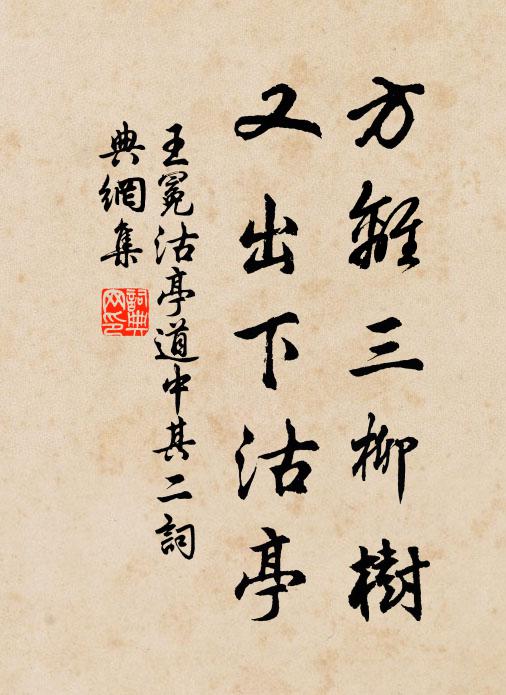 方離三柳樹
又出下沽亭
王冕沽亭道中其二詞
典網集
詞典
网印